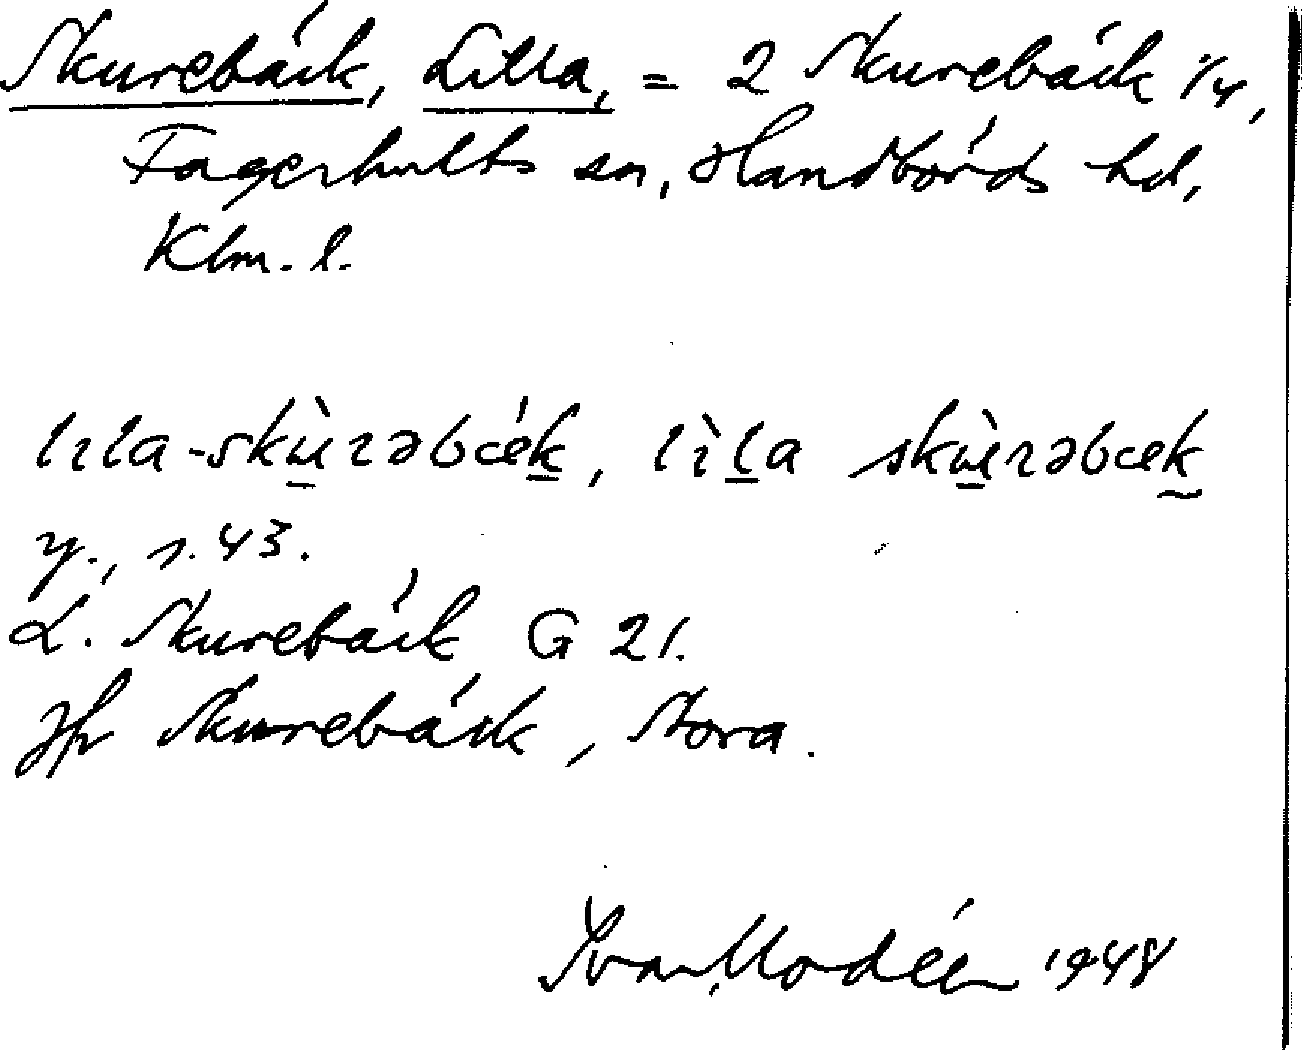 Skurebäck, Lilla, = 2 Skurebäck 1/4,
Fagerhults sn, Handbörds hd,
Klm. l.
lɪla-skùrəbǽk, lìla skùrəbæk
y., s. 43.
L. Skurebäck G 21.
Jfr Skurebäck, Stora.
Ivar Modéer 1948